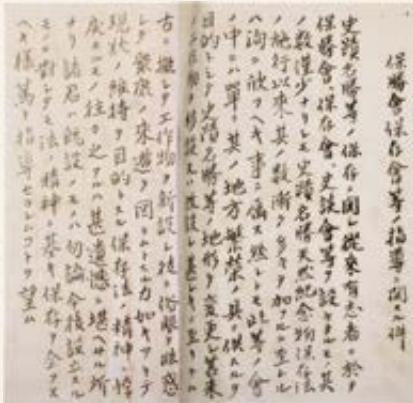 保勝會保存會等ノ指導ニ関スル件
史蹟名勝等ノ保存ニ関シ従来有志者ニ於テ
保勝會、保存會、史談會等ヲ設ケタルモ其
ノ数僅少ナリシモ史蹟名勝天然紀念物保存法
ノ施行以来其ノ数漸ク多キヲ加フルニ至レル
ハ洵ニ欣フヘキ事ニ属ス然レトモ此等ノ會
ノ中ニハ單ニ其ノ地方繁栄ノ具ニ供スルヲ
目的トシテ史蹟名勝等ノ地形ヲ変更シ若来
古ニ擬シテ工作物ヲ新設シ徒ニ俗眼ヲ眩惑
シテ衆庶ノ来遊ヲ図ラムトスルカ如キアリテ
現状ノ維持ヲ目的トスル保存法ノ精神ニ悖
戻スルモノ往々之アルハ甚遺憾ニ堪ヘサル所
ナリ諸君ハ既設ノモノハ勿論今後設立スル
モノニ對シテモ法ノ精神ニ基キ保存ヲ全フス
ヘキ様篤ト指導セラレムコトヲ望ム